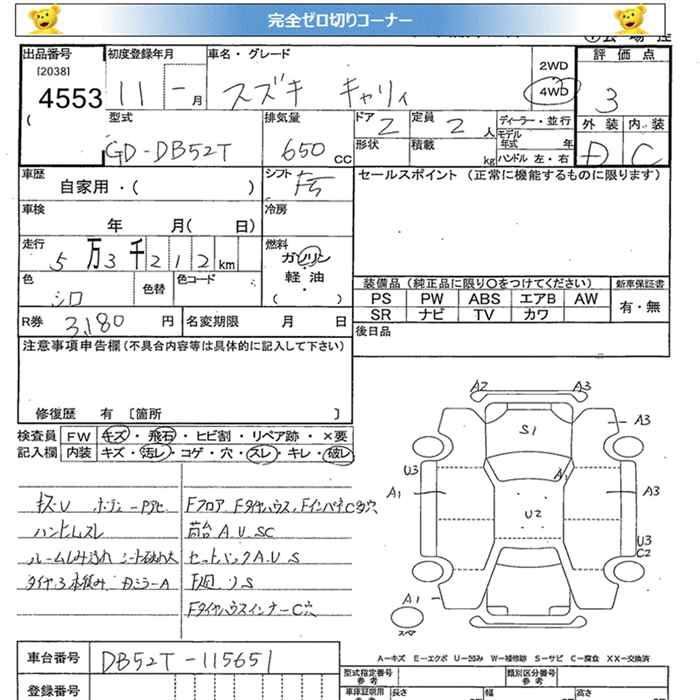 完全ゼロ切りコーナー
出品番号 初度登録年月 車名・グレード 2WD 評価点
[2038] 4553 11 - 月 スズキ キャリィ 4WD 3
型式 排気量 ドア 2 定員 2 人 ディーラー・並行 外装 内装
( GD-DB52T 650 CC 形状 積載 kg モデル年式 年 D C
ハンドル 左・右
車歴 自家用・( ) シフト F5 セールスポイント (正常に機能するものに限ります)
車検 年 月( 日) 冷房
走行 5 万 3 千 2 1 2 km 燃料 ガソリン
軽油
( )
色 シロ 色替 色コード
装備品 (純正品に限り○をつけてください) 新車保証書
PS PW ABS エアB AW 有・無
SR ナビ TV カワ
R券 3,180 円 名変期限 月 日
後日品
注意事項申告欄(不具合内容等は具体的に記入して下さい)
修復歴 有 [箇所 ]
検査員 FW キズ・飛石・ヒビ割・リペア跡・×要
記入欄 内装 キズ・汚レ・コゲ・穴・スレ・キレ・破レ
キズU
Fフロア Fタイヤハウス
ハンドルスレ 荷台A.U SC
ルームしみ汚れ シート破れ大 セットバックA.U S
F廻り S
FタイヤハウスインナーC穴
A2 A3
S1 A3
U3 A1 A1 A3
U2
U3
C2
A1
スペア
A-キズ E-エクボ U-凹み W-補修跡 S-サビ C-腐食 XX-交換済
車台番号 DB52T-115651
型式指定番号 参考 類別区分番号 参考
登録番号
車庫証明用 参考 長さ 幅 高さ